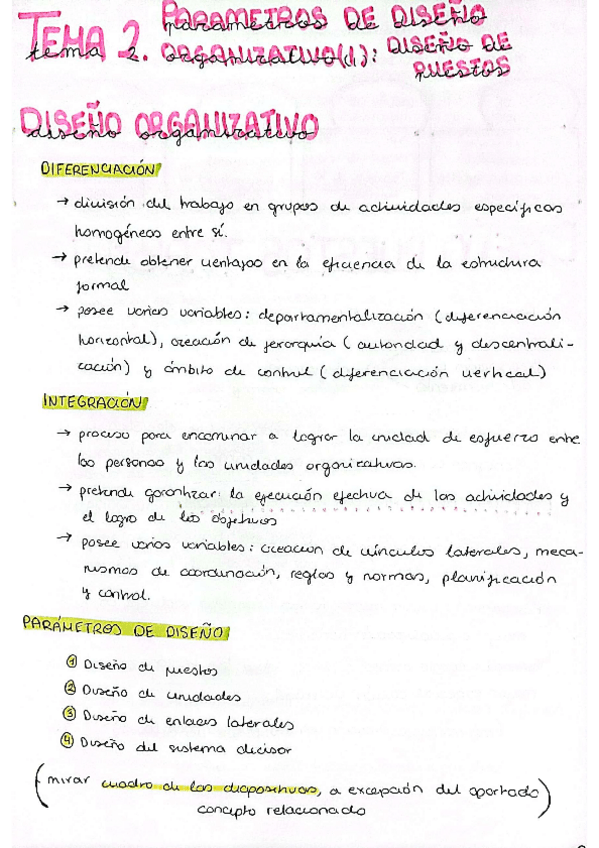 TEMA 2. PARAMETROS DE DISEÑO
ORGANIZATIVO(1): DISEÑO DE
PUESTOS
DISEÑO ORGANIZATIVO
DIFERENCIACIÓN
→ división del trabajo en grupos de actividades específicas
homogéneos entre sí.
→ pretende obtener ventajas en la eficiencia de la estructura
formal
→ posee varias variables: departamentalización (diferenciación
horizontal), creación de jerarquía (autoridad y descentrali-
cación) y ámbito de control (diferenciación vertical)
INTEGRACIÓN
→ proceso para encaminar a lograr la unidad de esfuerzo entre
las personas y las unidades organizativas.
→ pretende garantizar: la ejecución efectiva de las actividades y
el logro de los objetivos
→ posee varios variables: creacion de vínculos laterales, meca-
nismos de coordinación, reglas y normas, planificación
y control.
PARÁMETROS DE DISEÑO
① Diseño de puestos
② Diseño de unidades
③ Diseño de enlaces laterales
④ Diseño del sistema decisor
(mirar cuadro de las diapositivas, a excepción del apartado)
concepto relacionado